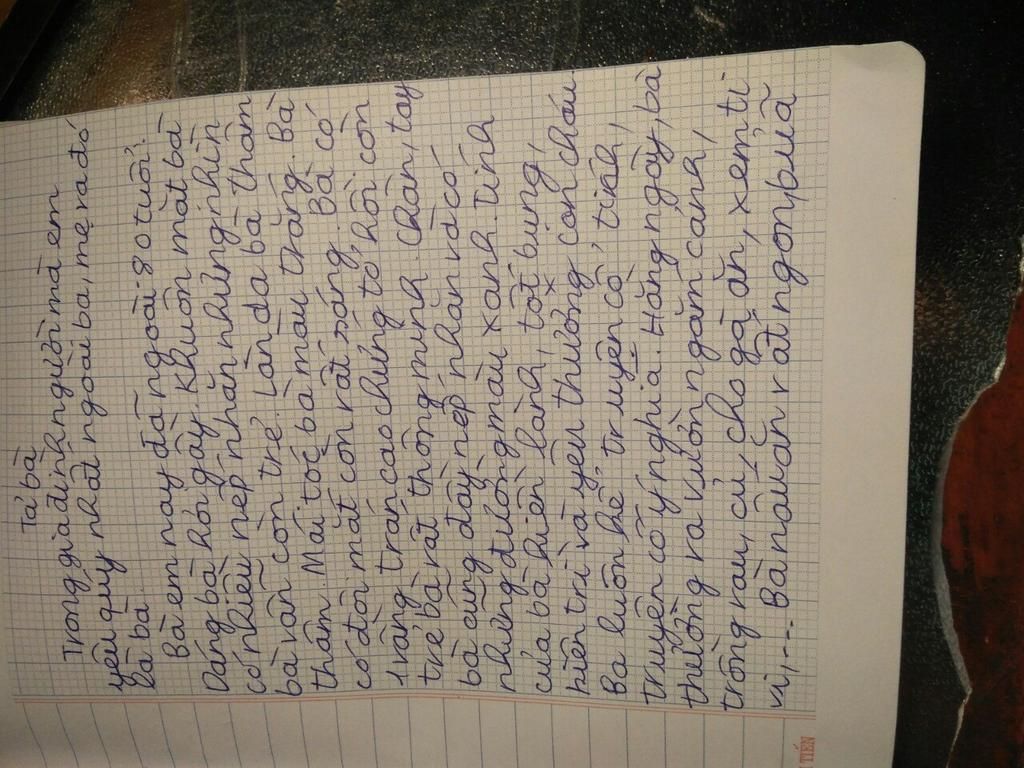 Tả bà
Trong gia đình người mà em
yêu quý nhất ngoài ba, mẹ ra đó
là bà.
Bà em nay đã ngoài 80 tuổi.
Dáng bà hơi gầy. Khuôn mặt bà
có nhiều nếp nhăn nhưng nhìn
bà vẫn còn trẻ. Làn da bà thâm
thâm. Mái tóc bà màu trắng. Bà
có đôi mắt còn rất sáng. Bà có
1 vầng trán cao chứng tỏ, hồi còn
trẻ bà rất thông minh. Chân, tay
bà cũng đầy nếp nhăn và có
những đường màu xanh. Tính
của bà hiền lành, tốt bụng,
hiền từ và yêu thương con cháu.
Bà luôn kể truyện cổ tích,
truyện có ý nghĩa. Hằng ngày, bà
thường ra vườn ngắm cảnh,
trồng rau, củ, cho gà ăn, xem ti
vi,... Bà nấu ăn rất ngon, bữa
TIẾN